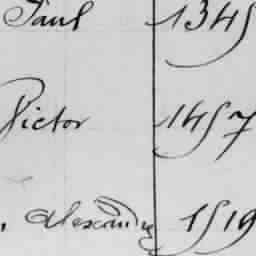 Paul 1345
Victor 1457
Alexandre 1519